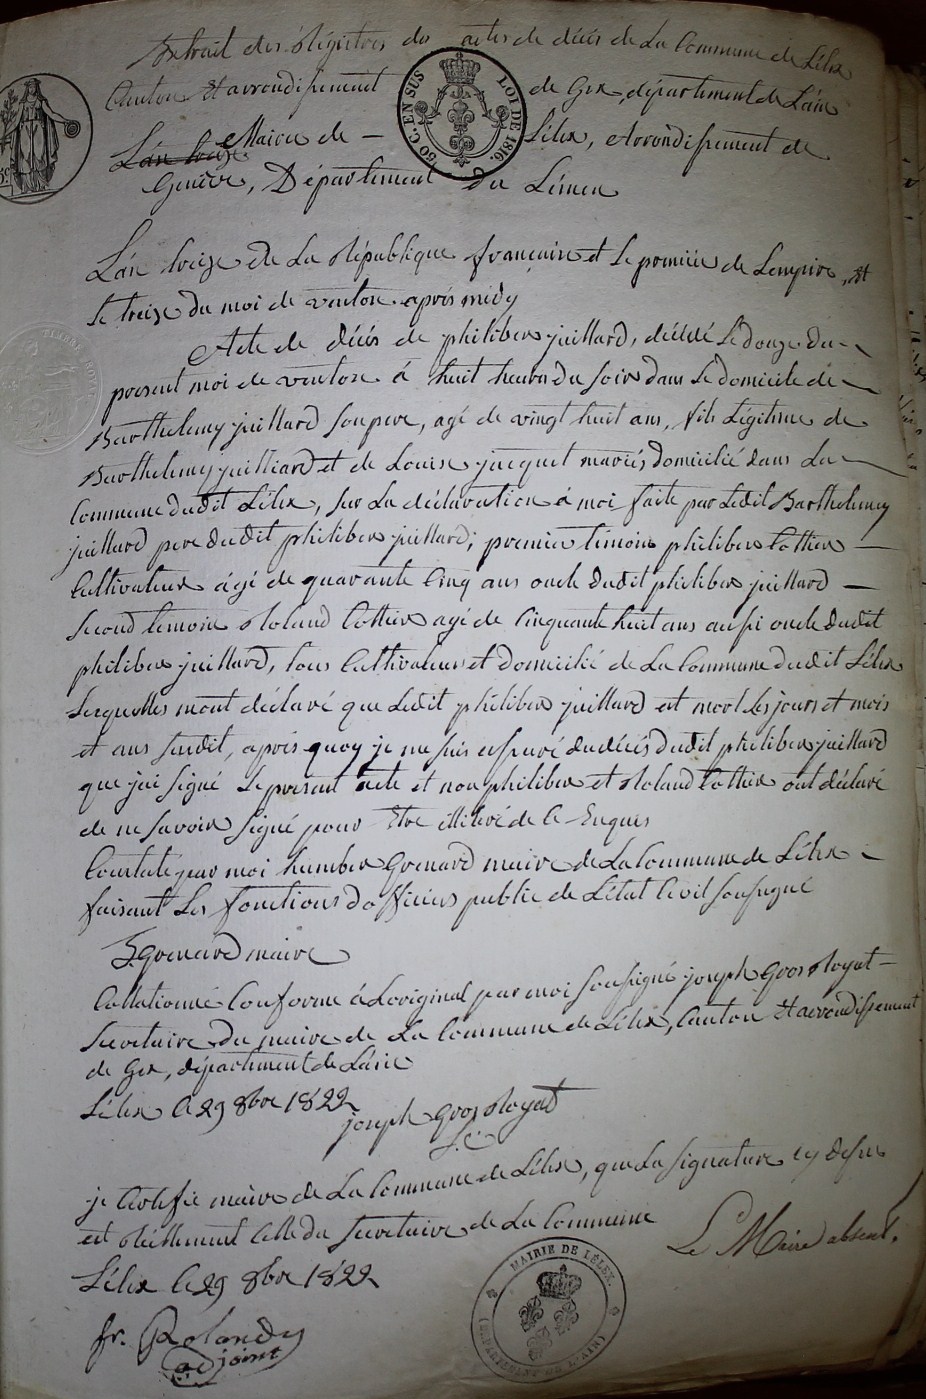 Extrait des Régistres des actes de décés de La Commune de Lélex
Canton Et arrondissement de Gex, département de Láin
50 C. EN SUS LOI DE 1816.
Lán treize Mairie de — Lélex, Arrondissement de
Genève, Département du Léman
Lán treize de La République françaises et Le premier de Lempire, et
Le treize du moi de ventose après midy
Acte de décés de philiber juillard, décédé Le douze du
present moi de ventose á huit heures du soir dans Le domicile de
Barthelemy juillard son pere, agé de vingt huit ans, fils Légitime de
Barthelemy juilliard et de Louise jacquet mariés domicilié dans La
Commune dudit Lélex, sur La déclaration á moi faite par Ledit Barthelemy
juillard pere dudit philiber juillard; premier temoins philiber Cottier
Cultivateur ágé de quarante Cinq ans oncle dudit philiber juillard
second temoin Roland Cottier agé de Cinquante huit ans aussi oncle dudit
philiber juillard, tous Cultivateurs et domicilié de La Commune dudit Lélex
Lesquelles mont déclaré que Ledit philiber juillard est mort Les jours et mois
et ans susdit, après quoy je me suis assuré du décés dudit philiber juillard
que jai signé Le present acte et non philiber et Roland Cottier ont déclaré
de ne savoir signé pour Etre illitéré de Ce Enquis
Constaté par moi humber Grenard maire de La Commune de Lélex
faisant Les fonctions dofficiers public de Létat Civil soussigné
h. grenard maire
Collationné Conforme á Loriginal par moi soussigné joseph Gros Royat
secretaire du maire de La Commune de Lélex, Canton Et arrondissement
de Gex, département de Láin
Lélex Ce 29 8bre 1822
joseph gros Royat
je Certifie maire de La Commune de Lélex, que La signature cy dessus
est Réellement Celle du secretaire de La Commune
Le Maire absent.
Lélex Ce 29 8bre 1822
MAIRIE DE LÉLEX.
(DÉPARTEMENT DE L'AIN)
fr. Rolandez
adjoint